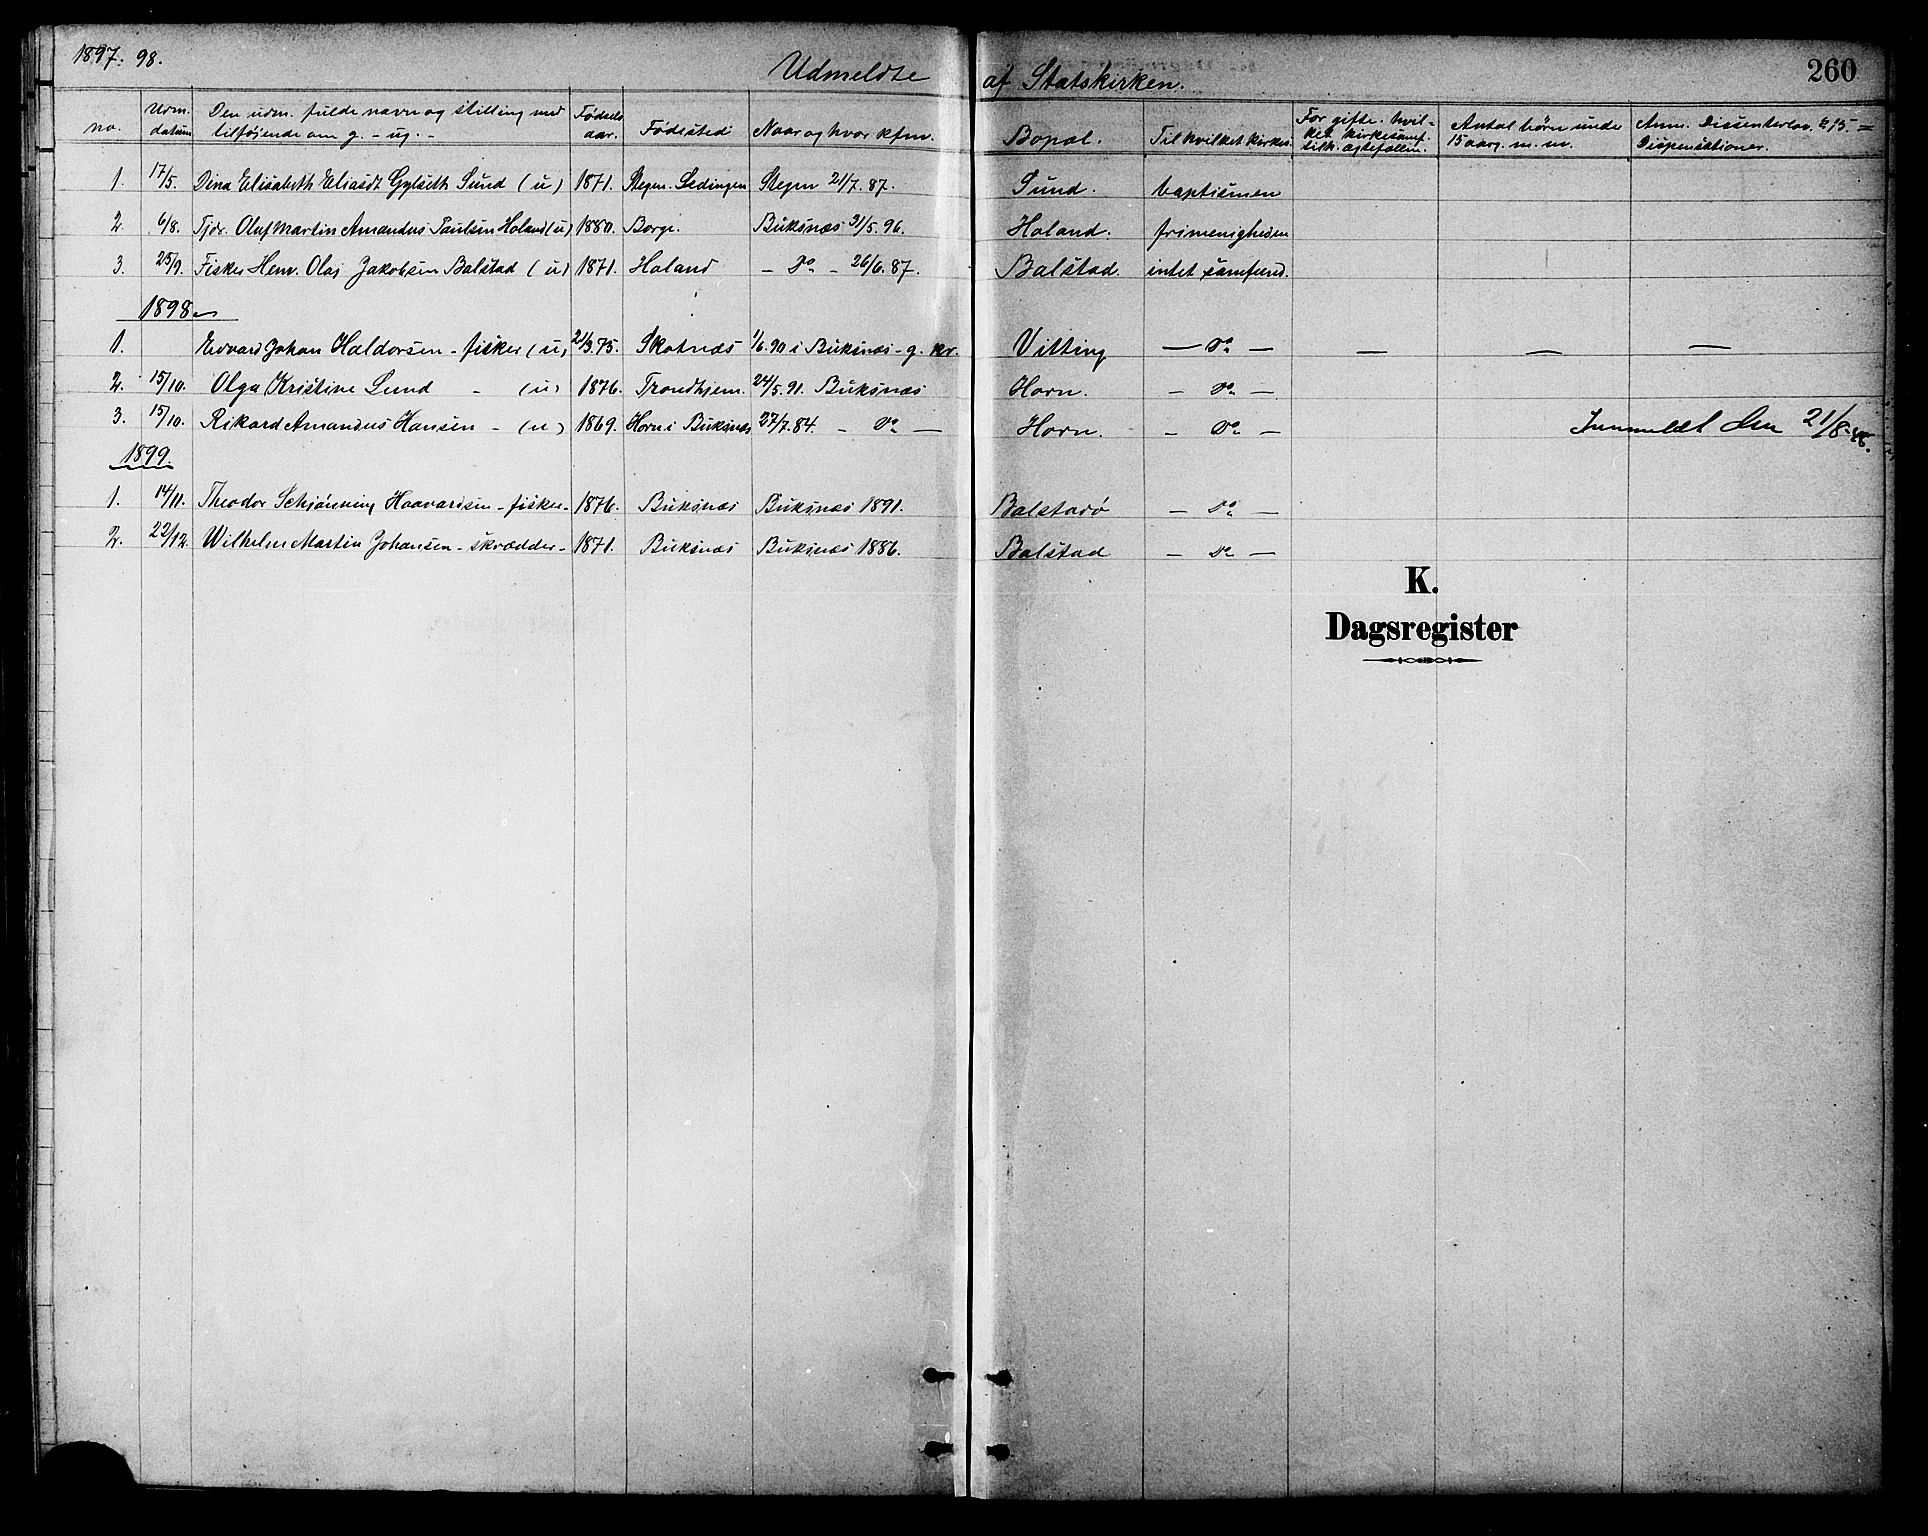 1897-98.
Udmeldte af Statskirken. 260
no. Udm. datum Den udm. fulde navn og stilling med tilføjende om g. - ug. - Fødsels aar. Fødested Naar og hvor kfm. Bopæl. Til hvilket kirkes. For gifte. hvilket kirkesamf. tilh. ægtefællen. Antal børn under 15 aarg. m. m. Anm. Dissenterlov. § 15. = Dispensationer.
1. 17/5. Dina Elisabeth Eliasdt Gylseth Sund (u) 1871. Stegen. Lødingen Stegen 21/7. 87. Sund. baptismen
2. 6/8. Tjdr. Oluf Martin Amandus Paulsen Holand (u) 1880. Borge. Buksnæs 31/5. 96. Holand. frimenigheden
3. 25/9. Fisker Henr. Olaj Jakobsen Balstad (u) 1871. Holand - Do - 26/6. 87. Balstad. intet samfund.
1898
1. Edvard Johan Haldorsen - fisker (u) 21/3. 75. Skotnæs 1/6. 90 i Buksnæs - g. kr. Vitting - Do - - - -
2. 15/10. Olga Kristine Lund - (u) 1876. Trondhjem. 24/5. 91. Buksnæs Horn. - Do -
3. 15/10. Rikard Amandus Hansen - (u) 1869. Horn i Buksnæs 27/7. 84. - Do - Horn. - Do - Innmeldt den 21/8-
1899.
1. 14/11. Theodor Schjønning Haavardsen - fisker - 1876. Buksnæs Buksnæs 1891. Balstadø - Do -
2. 22/12. Wilhelm Martin Johansen - skrædder - 1871. Buksnæs Buksnæs 1886. Balstad - Do -
K.
Dagsregister